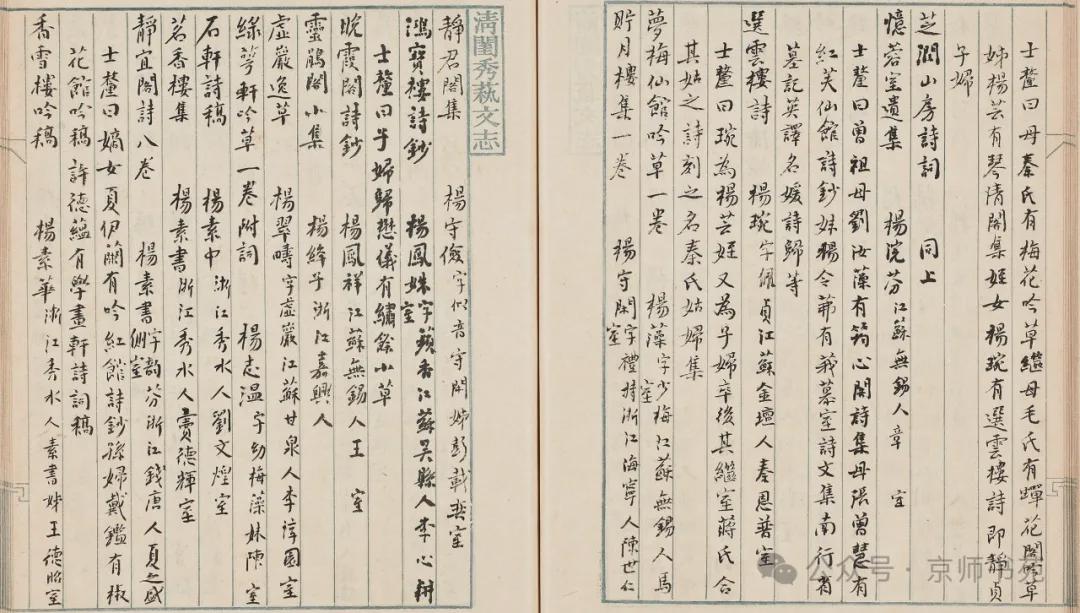 士釐曰母秦氏有梅花吟草繼母毛氏有蟬花閣吟草
姊楊芸有琴清閣集姪女楊琬有選雲樓詩即靜貞
子婦
芝潤山房詩詞 同上
憶蓉室遺集 楊浣芬江蘇無錫人章 室
士釐曰曾祖母劉汝藻有筠心閣詩集母張曾慧有
紅芙仙館詩鈔妹楊令茀有莪慕室詩文集南行省
墓記英譯名媛詩歸等
選雲樓詩 楊琬字佩貞江蘇金壇人秦恩普室
士釐曰琬為楊芸姪又為子婦卒後其繼室蔣氏合
其姑之詩刻之名秦氏姑婦集
夢梅仙館吟草一卷 楊藻字少梅江蘇無錫人馬 室
貯月樓集一卷 楊守閑字禮持浙江海寧人陳世仁室
清閨秀藝文志
靜君閣集 楊守儉字似音守閑姊彭載英室
鴻寶樓詩鈔 楊鳳姝字蘋香江蘇吳縣人李心耕室
士釐曰子婦歸懋儀有繡餘小草
晚霞閣詩鈔 楊鳳祥江蘇無錫人王 室
靈鵲閣小集 楊絳子浙江嘉興人
虛巖逸草 楊翠疇字虛巖江蘇甘泉人李淳園室
綠萼軒吟草一卷附詞 楊志溫字幼梅藻妹陳 室
石軒詩稿 楊素中浙江秀水人劉文煌室
茗香樓集 楊素書浙江秀水人賣德輝室
靜宜閣詩八卷 楊素書字韵芬浙江錢唐人夏之盛側室
士釐曰嫡女夏伊蘭有吟紅館詩鈔孫婦戴鑑有椒
花館吟稿許德蘊有學畫軒詩詞稿
香雪樓吟稿 楊素華浙江秀水人素書妹王德昭室
公众号·京师书苑